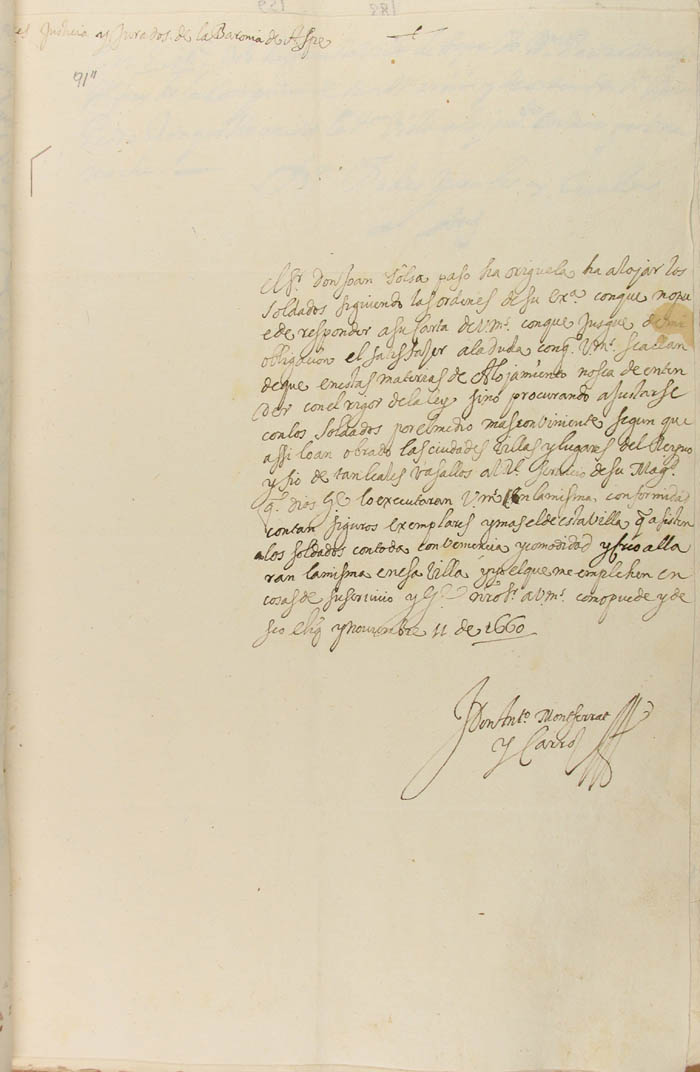 es Justicia y Jurados de la Baronia de Aspe
91"
El Sr. Don Joan Solsa paso ha origuela ha alojar los
Soldados siguiendo las ordenes de su exa. conque nopu
ede responder a su carta de V.ms. conque Jusque de mi
obligacion el satisfaser ala duda conq. V.ms. se allan
deque en estas materias de Alojamiento no sea de enten
der con el rigor de la ley sino procurando ajustarse
con los Soldados por el medio mas conviniente segun que
assi lo an obrado las ciudades villas y lugares del Reyno
y fio de tan leales vasallos al Rl. servicio de su Magd.
q. Dios ge. lo executaran V.ms. en la misma conformidad
con tan siguros exemplares y mas el de esta villa q. asisten
a los soldados con toda convenencia y comodidad y fio alla
ran la misma en esa Villa y yo el que me emplehen en
cosas de su servicio y ge. nro. sr. a V.ms. como puede y de
seo elig y noviembre 11 de 1660
Don Anto. Montserrat
y Carros